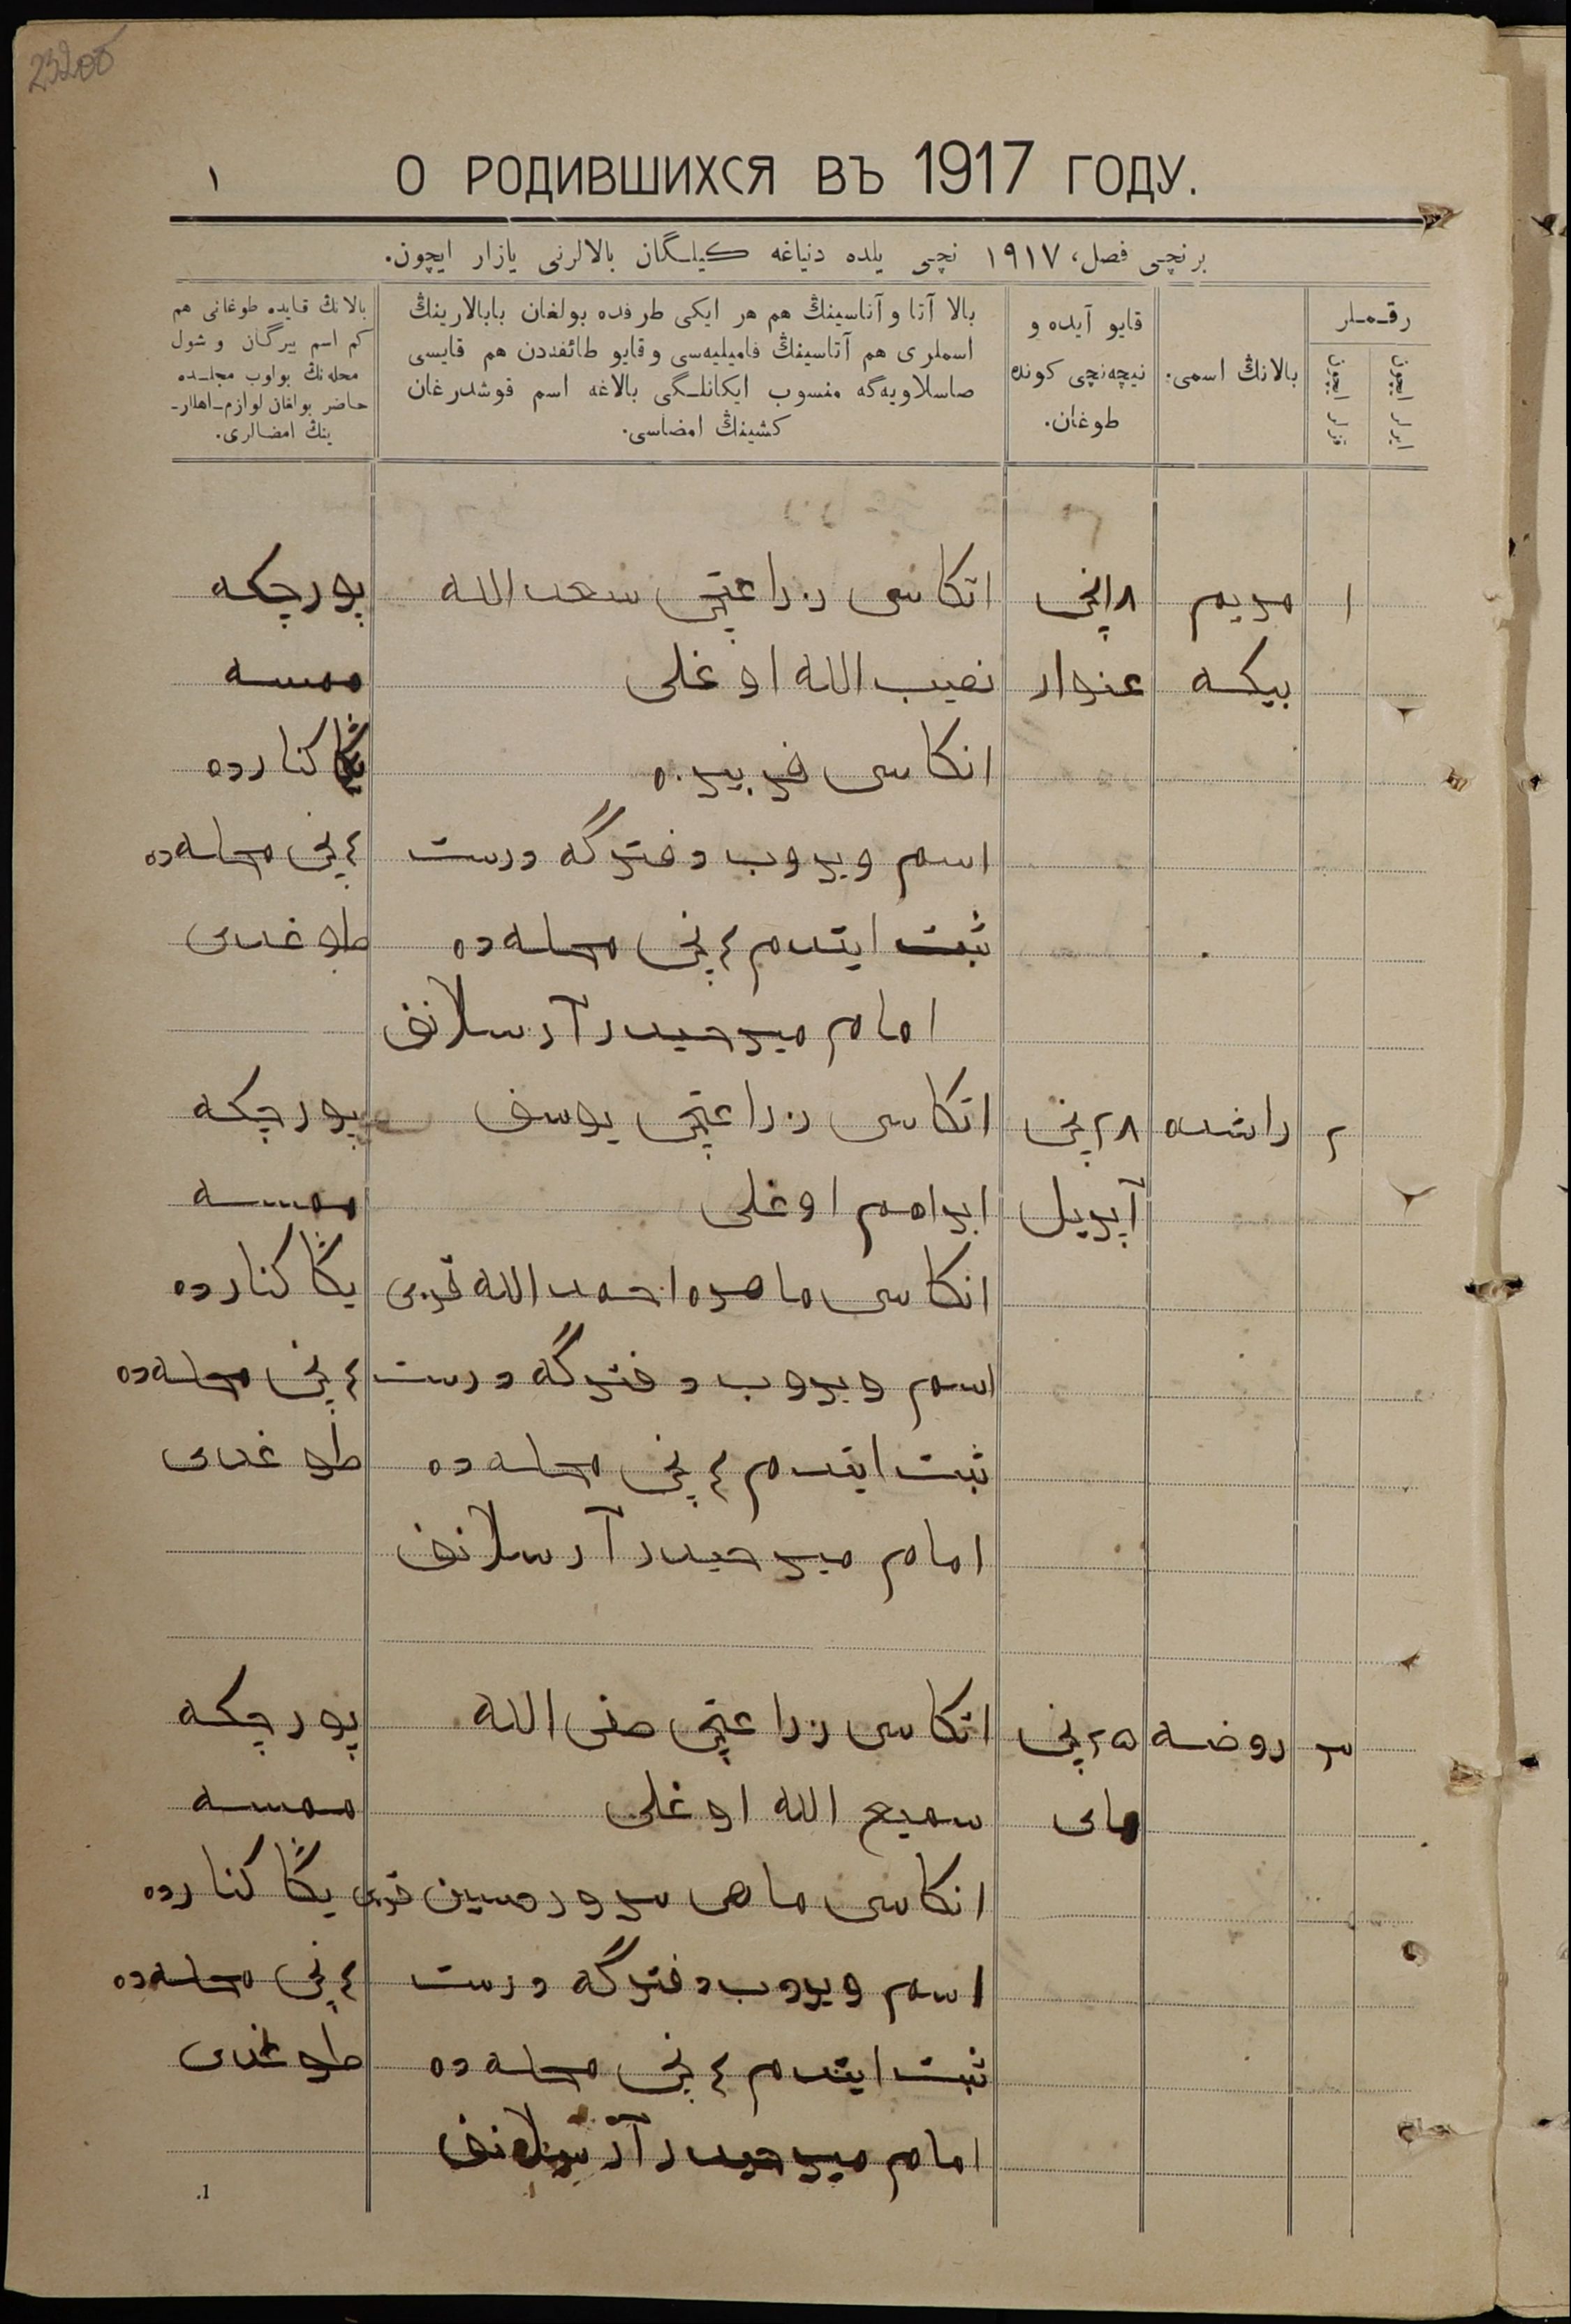 23206
О РОДИВШИХСЯ ВЪ 1917 ГОДУ.
١
برنچی فصل، ١٩١٧ نچی یلده دنیاغه کیلگان بالالرنی یازار ایچون.
رقملر
ایرلر ایچون
قزلر ایچون
بالانڭ اسمی.
قایو آیده و
نیچه‌نچی کونده
طوغان.
بالا آتا و آناسینڭ هم هر ایکی طرفده بولغان بابالارینڭ
اسملری هم آتاسینڭ فامیلیه‌سی و قایو طائفه‌دن هم قایسی
صاسلاویه‌گه منسوب ایکانلگی بالاغه اسم قوشدرغان
کشینڭ امضاسی.
بالانڭ قایده طوغانی هم
کم اسم بیرگان و شول
محله‌نڭ بولوب مجلسده
حاضر بولغان لوازم اهللر-
ینڭ امضالری.
١ مریم ١٨نچی اتکاسی زراعتچی سعدالله پورچکه
بیکه عنوار نصیب الله اوغلی ممسه
انکاسی فریزه یڭا کنارده
اسم ویروب دفترگه درست ٤ نچی محله‌ده
ثبت ایتدم ٤ نچی محله‌ده طوغدی
امام میرحیدر آرسلانف
٢ راشده ٢٨نچی اتکاسی زراعتچی یوسف پورچکه
آپریل ابراهیم اوغلی ممسه
انکاسی ماهره احمدالله قزی یڭا کنارده
اسم ویروب دفترگه درست ٤ نچی محله‌ده
ثبت ایتدم ٤ نچی محله‌ده طوغدی
امام میرحیدر آرسلانف
٣ روضه ٢٥نچی اتکاسی زراعتچی صفی الله پورچکه
مای سمیع الله اوغلی ممسه
انکاسی ماهی سرور حسین قزی یڭا کنارده
اسم ویروب دفترگه درست ٤ نچی محله‌ده
ثبت ایتدم ٤ نچی محله‌ده طوغدی
امام میرحیدر آرسلانف
1.